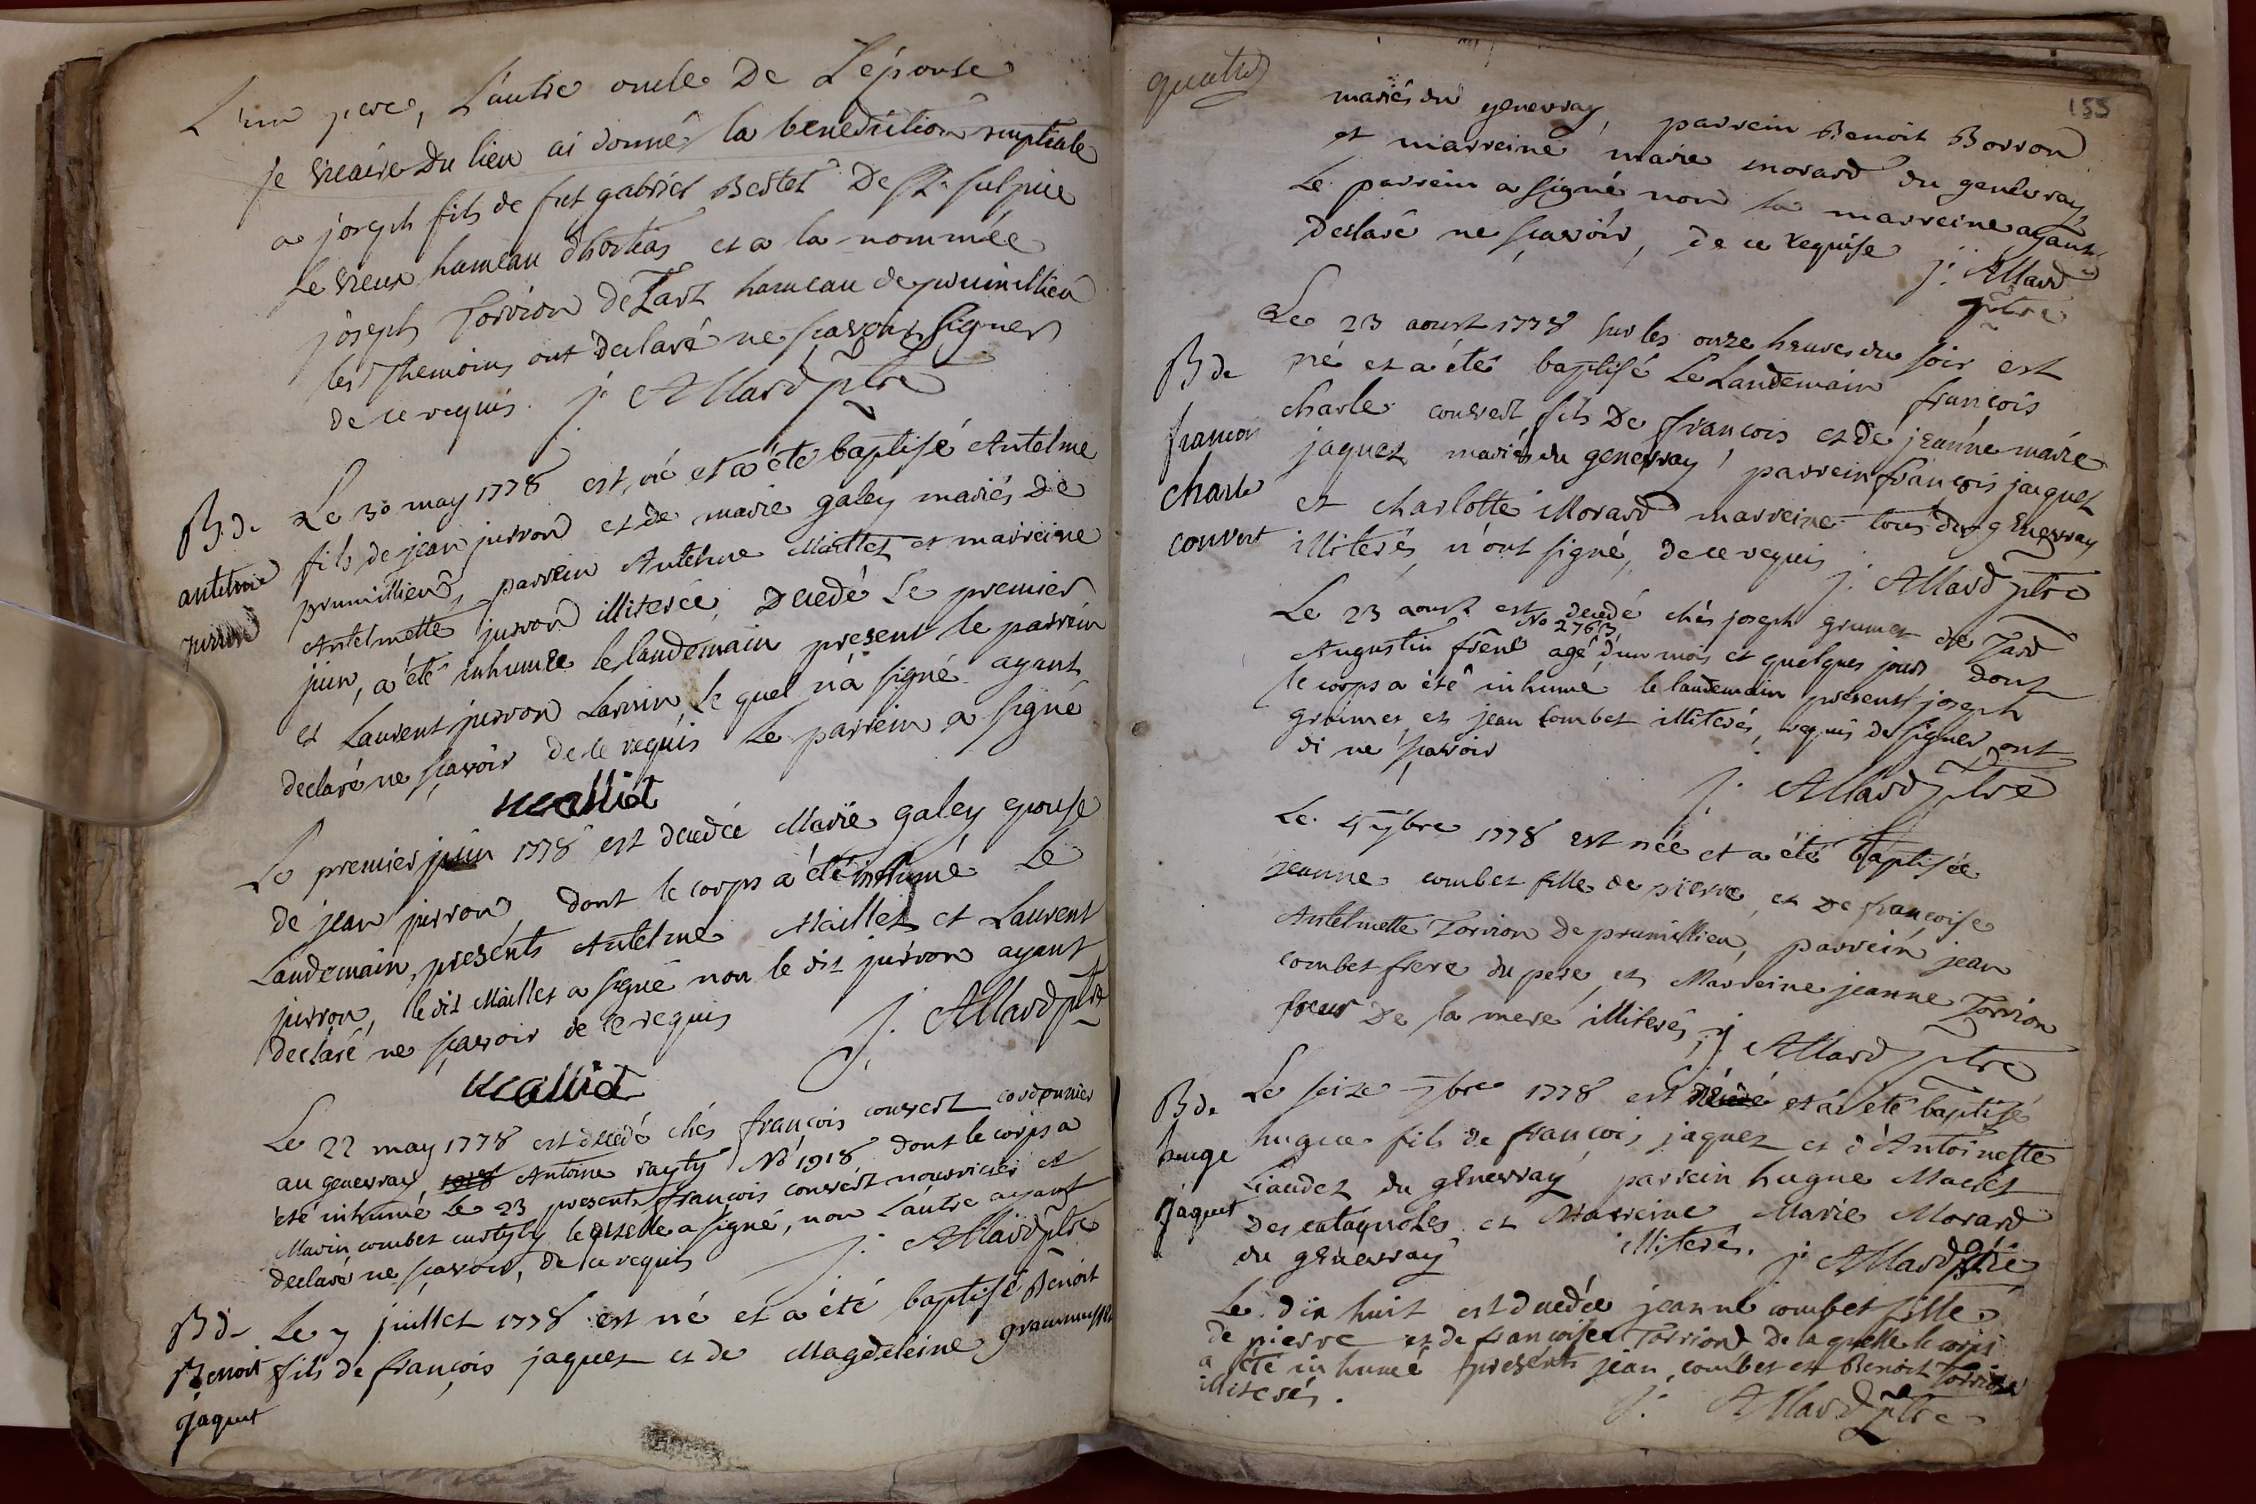 L'un pere, L'autre oncle De L'épouse
je vicaire Du lieu ai donné la benediction nuptiale
a joseph fils de fut gabriel Bertet De St. sulpice
Le vieux hameau et a la nommée
joseph Torrion De Lart hameau de prumillieu
les Themoins ont Declaré ne sçavoir signer
de ce requis. j. Allard ptre
B. de
antelme
jurron
Le 30 may 1778 est né et a été baptisé Antelme
fils de jean jurron et de marie galey mariés De
prumillieu, parrein Antelme Maillet et marreine
Antelmette jurron illiterée, Decedé Le premier
juin, a été inhumée le landemain present le parrein
et Laurent jurron Larvin, le quel n'a signé ayant
declaré ne sçavoir de ce requis Le parrein a signé
Malliet
Le premier juin 1778 est decedée Marie galey epouse
de jean jurron, dont le corps a été inhumé Le
Landemain, presents Antelme Maillet et Laurent
jurron, le dit Maillet a signé non le dit jurron ayant
declaré ne sçavoir de ce requis j. Allard ptre
Malliet
Le 22 may 1778 est decedé chés françois couvert cordonnier
au genevray 1918 Antoine rayty No 1918 dont le corps a
été inhumé Le 23 presents françois couvert nourricier et
Marin combet a signé, non L'autre ayant
declaré ne sçavoir, de ce requis j. Allard ptre
B de
Benoit
jaquet
Le 7 juillet 1778 est né et a été baptisé Benoit
fils de françois jaquet et de Magdeleine
quatre
155
mariés du genevray, parrein Benoit Borron
et marreine marie morard du genevray
Le parrein a signé non la marreine ayant
Declaré ne sçavoir, de ce requise j. Allard
ptre
B de
francois
charle
couvert
Le 23 aoust 1778 sur les onze heures du soir est
né et a été baptisé Le Landemain françois
charle couvert fils De françois et de jeanne marie
jaquet mariés du genevray, parrein françois jaquet
et charlotte Morard marreine tous du genevray
illiterés, n'ont signé, de ce requis j. Allard ptre
Le 23 aoust est decedé chés joseph grumet de Lard
No 2763
Augustin frêne agé d'un mois et quelques jours dont
le corps a été inhume le landemain presents joseph
grumet et jean combet illiterés, requis de signer ont
di ne sçavoir j. Allard ptre
Le 4 7bre 1778 est née et a été baptisée
jeanne combet fille de pierre et De françoise
Antelmette Torrion De prumillieu, parrein jean
combet frere du pere et Marreine jeanne Torrion
soeur De la mere illiterés j. Allard ptre
B de
huge
jaquet
Le seize 7bre 1778 est et a été baptisé
hugue fils de françois jaquet et d'Antoinette
Liaudet du genevray parrein hugue Maclet
Des catagnoles et Marreine Marie Morard
du genevray illiterés. j. Allard ptre
Le dix huit est decedée jeanne combet fille
de pierre et de françoise Torrion De laquelle le corps
a été inhumé presents jean combet et Benoit Torrion
illiterés. j. Allard ptre